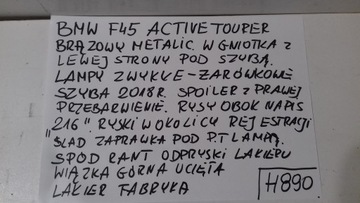 BMW F45 ACTIVE TOUPER
BRĄZOWY METALIC. WGNIOTKA Z
LEWEJ STRONY POD SZYBĄ.
LAMPY ZWYKŁE-ŻARÓWKOWE
SZYBA 2018R. SPOILER Z PRAWEJ
PRZEBARWIENIE. RYSY OBOK NAPIS
"216". RYSKI W OKOLICY REJESTRACJI
ŚLAD ZAPRAWKA POD P.T LAMPĄ.
SPÓD RANT ODPRYSKI LAKIERU
WIĄZKA GÓRNA UCIĘTA
LAKIER FABRYKA
H890